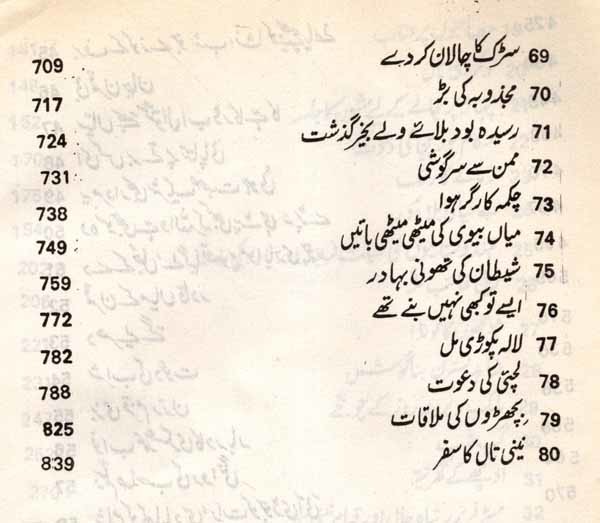 69 سڑک کا چالان کر دے 709
70 مجذوبہ کی بڑ 717
71 رسیدہ بود بلائے ولے بخیر گذشت 724
72 ممن سے سرگوشی 731
73 چکمہ کارگر ہوا 738
74 میاں بیوی کی میٹھی میٹھی باتیں 749
75 شیطان کی تھونی بہادر 759
76 ایسے تو کبھی نہیں بنے تھے 772
77 لالہ پکوڑی مل 782
78 لچتی کی دعوت 788
79 بچھڑوں کی ملاقات 825
80 نینی تال کا سفر 839